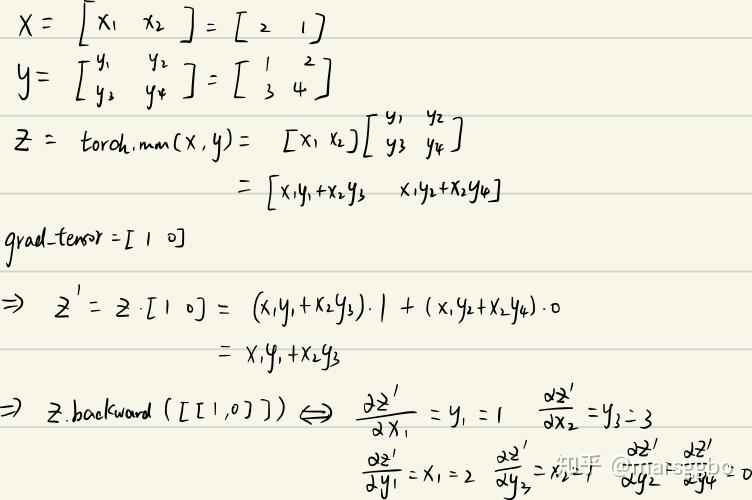 X = [ x₁ x₂ ] = [ 2 1 ]
y = [ y₁ y₂ ] = [ 1 2 ]
[ y₃ y₄ ] [ 3 4 ]
Z = torch.mm(x,y) = [x₁ x₂] [ y₁ y₂ ]
[ y₃ y₄ ]
= [x₁y₁+x₂y₃ x₁y₂+x₂y₄]
grad_tensor = [ 1 0 ]
⇒ Z' = Z · [ 1 0 ] = (x₁y₁+x₂y₃)·1 + (x₁y₂+x₂y₄)·0
= x₁y₁+x₂y₃
⇒ Z.backward([[1,0]]) ⇔ ∂Z'/∂x₁ = y₁ = 1 ∂Z'/∂x₂ = y₃ = 3
∂Z'/∂y₁ = x₁ = 2 ∂Z'/∂y₃ = x₂ = 1 ∂Z'/∂y₂ = ∂Z'/∂y₄ = 0
知乎 @marsggbo